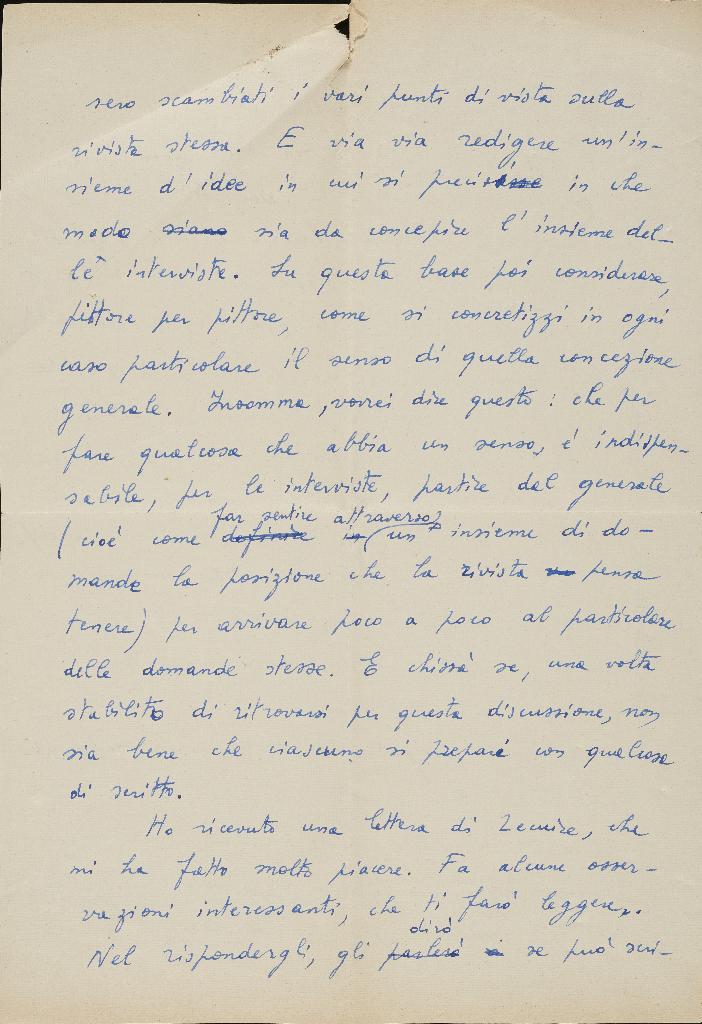 sero scambiati i vari punti di vista sulla
rivista stessa. E via via redigere un'in-
sieme d'idee in cui si precisasse in che
modo siano sia da concepire l'insieme del-
le interviste. Su questa base poi considerare,
pittore per pittore, come si concretizzi in ogni
caso particolare il senso di quella concezione
generale. Insomma, vorrei dire questo: che per
fare qualcosa che abbia un senso, é indispen-
sabile, per le interviste, partire dal generale
far sentire attraverso
(cioé come definire in un insieme di do-
mande la posizione che la rivista pensa
tenere) per arrivare poco a poco al particolare
delle domande stesse. E chissà se, una volta
stabilito di ritrovarsi per questa discussione, non
sia bene che ciascuno si prepari con qualcosa
di scritto.
Ho ricevuto una lettera di Lecuire, che
mi ha fatto molto piacere. Fa alcune osser-
vazioni interessanti, che ti farò leggere.
dirò
Nel rispondergli, gli parlerò a se può scri-